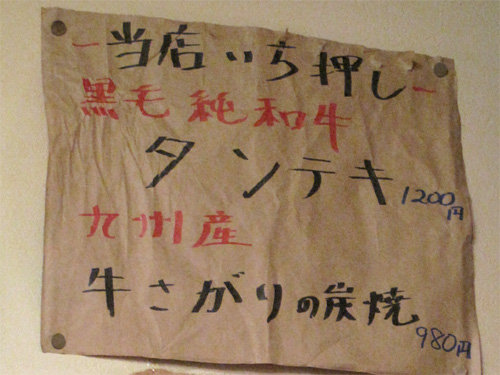 -当店いち押し-
黒毛純和牛
タンテキ 1200円
九州産
牛さがりの炭焼 980円